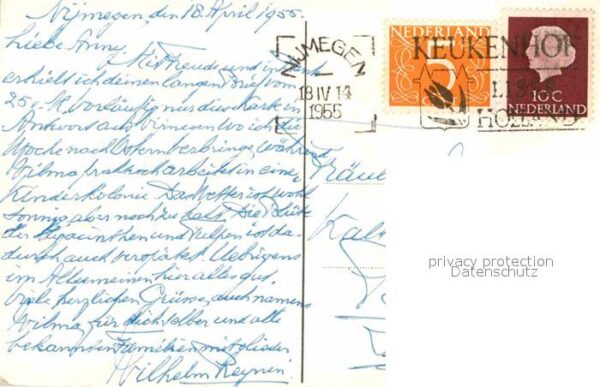 Nijmegen, den 18. April 1955.
Liebe Anny,
Mit Freude und
erhielt ich deinen langen Brief vom
25. v. M. Vorläufig nur diese Karte in
Antwort aus Nijmegen wo ich die
Woche nach Ostern verbringe, während
Wilma arbeitet in eine
Kinderkolonie. Das Wetter ist wohl
sonnig aber noch zu kalt. Die Blüte
der Hyacinthen und Tulpen ist da-
durch auch verspätet. Uebrigens
im Allgemeinen hier alles gut.
Viele herzlichen Grüsse, auch namens
Wilma, für dich selber und alle
bekannten Familienmitglieder.
Wilhelm Reynen
NIJMEGEN
18 IV 14
1955
NEDERLAND
5
KEUKENHOF
LISSE
HOLLAND
10C
NEDERLAND
Fräu
Kal
privacy protection
Datenschutz